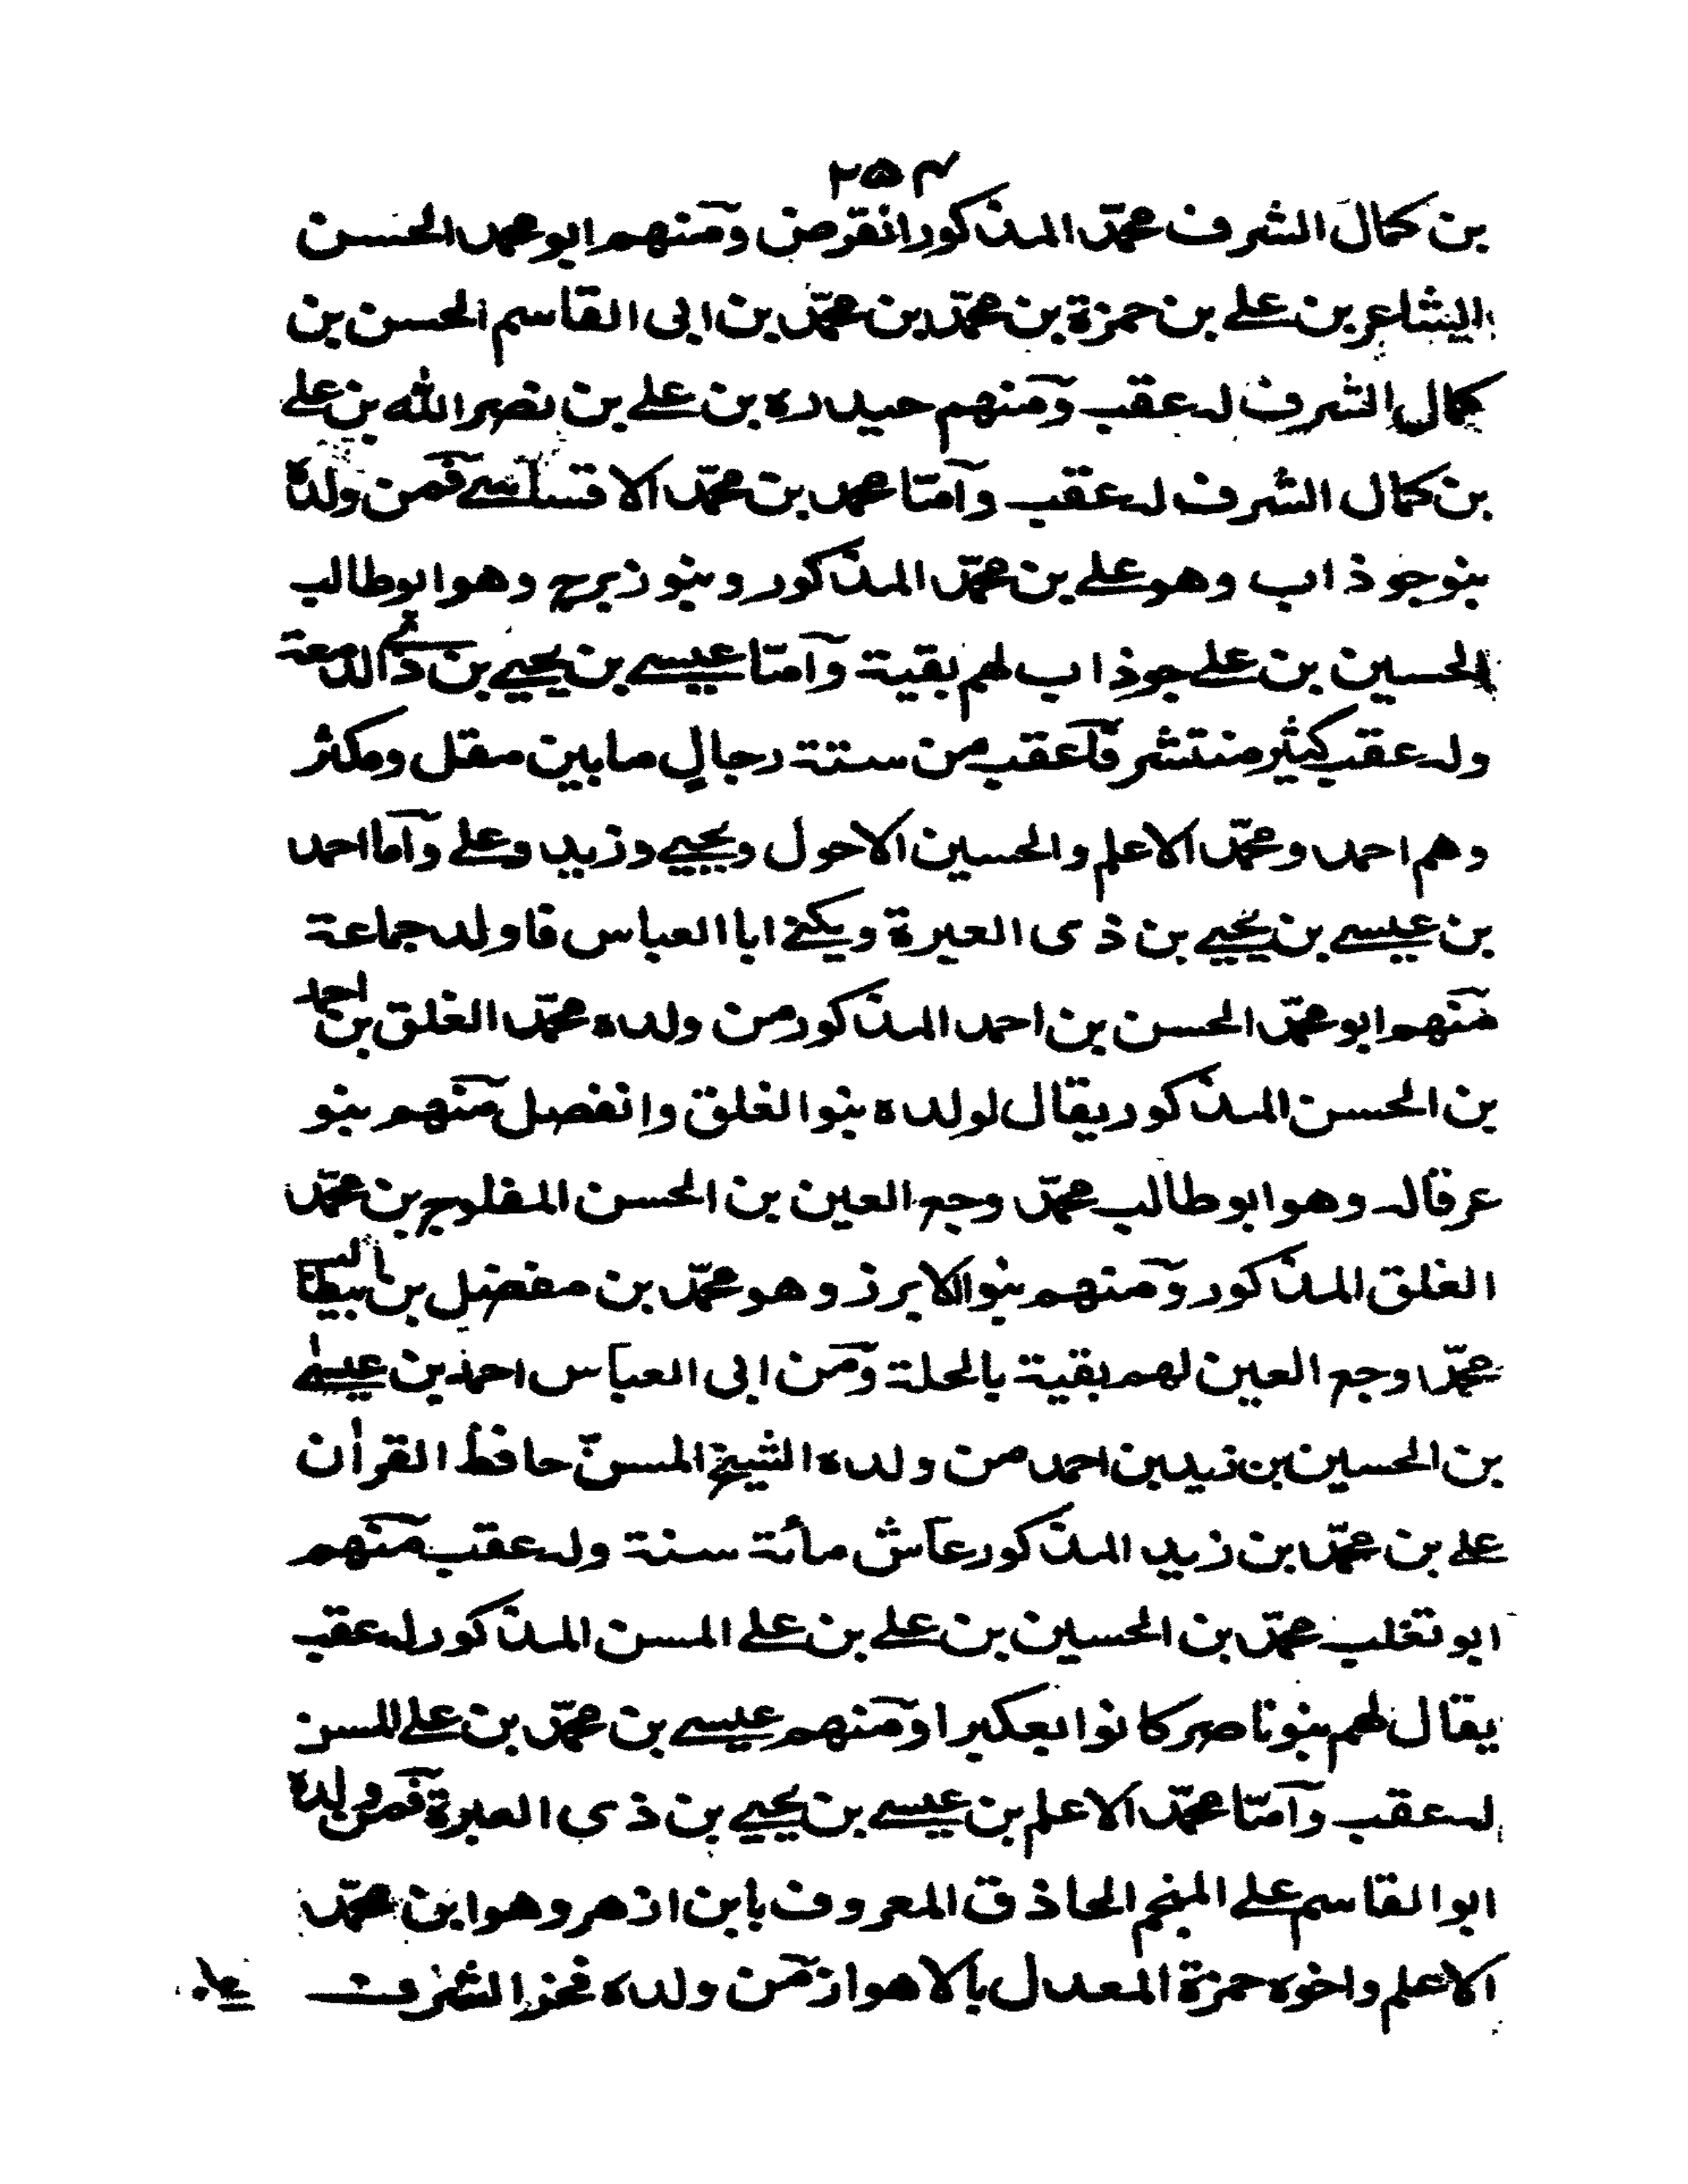 ٢٥٣
بن كمال الشرف محمّد المذكور انقرض ومنهم ابو محمد الحسن
الشاعر بن علے بن حمزة بن محمّد بن محمّد بن ابى القاسم الحسن بن
كمال الشرف له عقب ومنهم حيدره بن علے بن نصر الله بن علے
بن كمال الشرف له عقب وآمّا محمد بن محمّد الاقساسے فمن ولده
بنو جوذاب وهو علے بن محمّد المذكور وبنو زبرج وهو ابو طالب
الحسين بن علے جوذاب لهم بقية وآمّا عيسے بن يحيے بن ذى الدمعة
وله عقب كثير منتشر فآعقب من ستة رجالٍ ما بين مقل ومكثر
وهم احمد ومحمّد الاعلم والحسين الاحول ويحيے وزيد وعلے وآما احمد
بن عيسے بن يحيے بن ذى العبرة ويكنے ابا العباس فاولد جماعة
منهم ابو محمّد الحسن بن احمد المذكور من ولده محمّد الغلق بن احمد
بن الحسن المذكور يقال لولده بنوا الغلق وانفصل منهم بنو
عرقاله وهو ابو طالب محمّد وجع العين بن الحسن المفلوج بن محمّد
الغلق المذكور ومنهم بنوا الابرز وهو محمّد بن مفضل بن ابيطالب
محمّد وجع العين لهم بقية بالحلة ومن ابى العباس احمد بن عيسى
بن الحسين بن زيد بن احمد من ولده الشيخ المسنّ حافظ القرأن
علے بن محمّد بن زيد المذكور عاش مأتة سنة وله عقب منهم
ابو تغلب محمّد بن الحسين بن علے بن علے المسن المذكور له عقب
يقال لهم بنو ناصر كانوا بعكبرا ومنهم عيسے بن محمّد بن علے المسن
له عقب وآمّا محمّد الاعلم بن عيسے بن يحيے بن ذى العبرة فمن ولده
ابو القاسم علے المنجم الحاذق المعروف بابن ازهر وهو ابن محمّد
الاعلم واخوه حمزة المعدل بالاهواز من ولده فخر الشرف